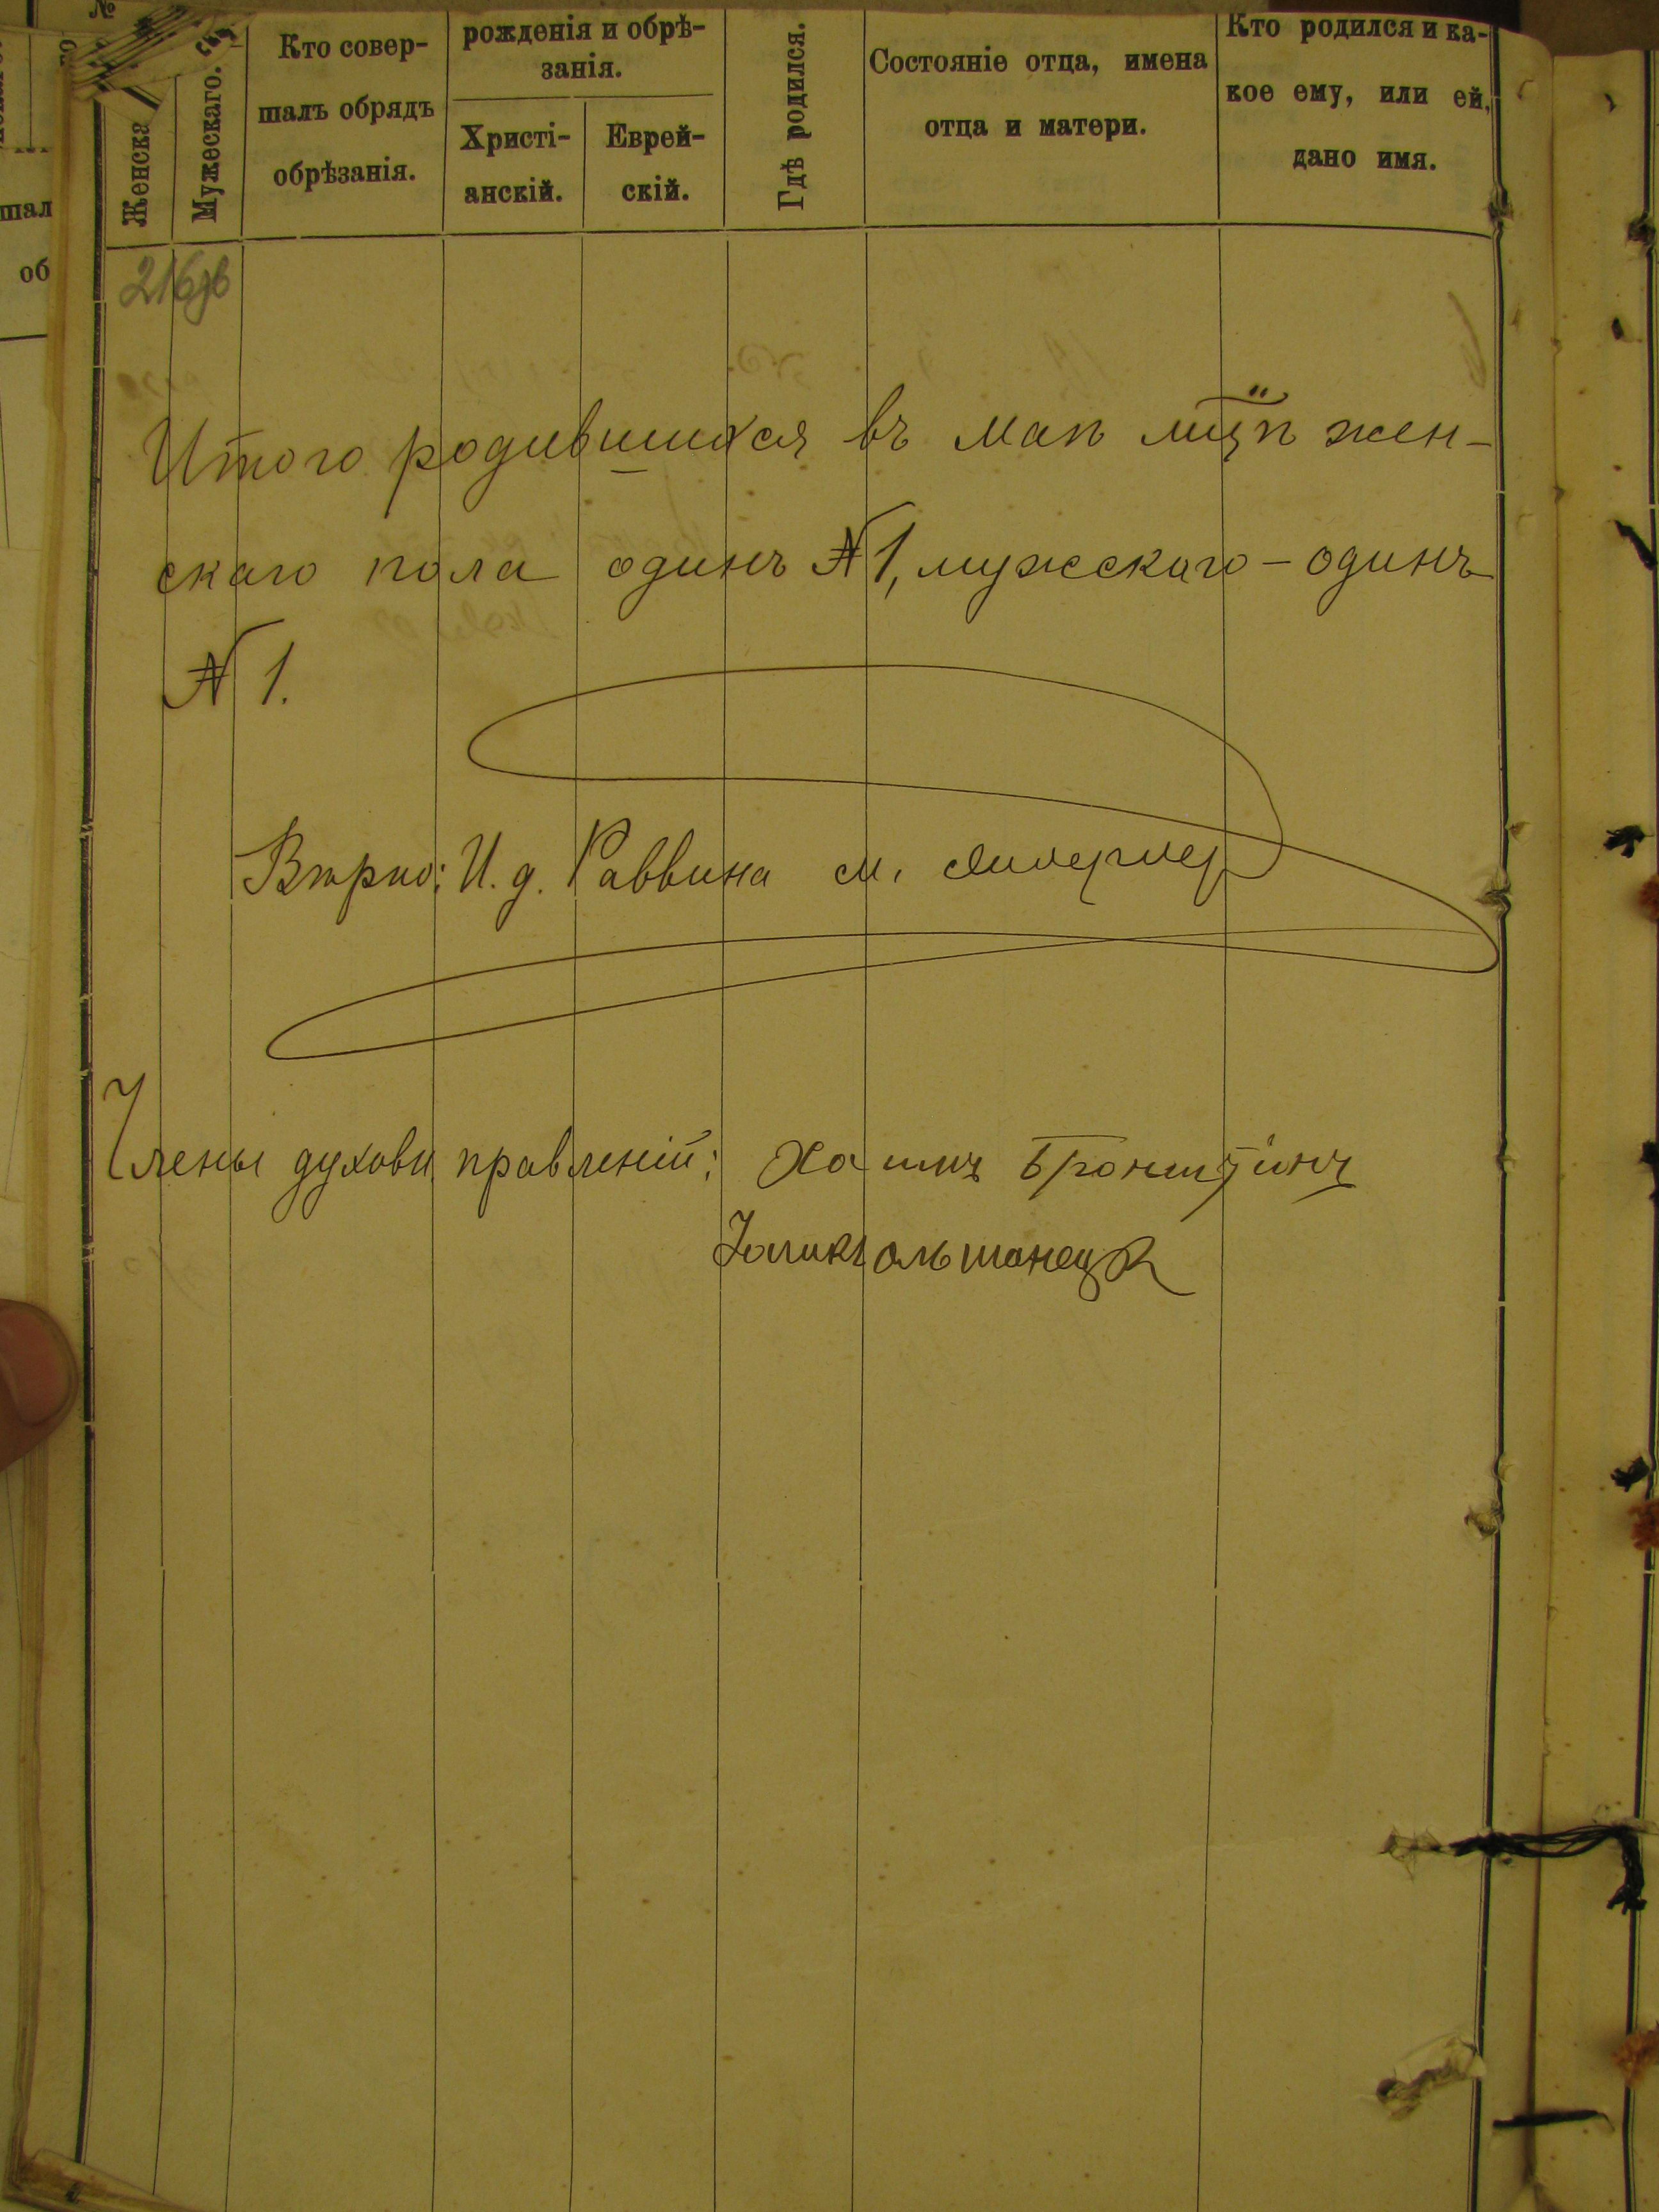 №
Женска
Мужескаго.
Кто совер-
шалъ обрядъ
обрѣзанія.
рожденія и обрѣ-
занія.
Христі-
анскій.
Еврей-
скій.
Гдѣ родился.
Состояніе отца, имена
отца и матери.
Кто родился и ка-
кое ему, или ей,
дано имя.
шал
об
216об
Итого родившихся въ маѣ мцѣ жен-
скаго пола одинъ № 1, мужскаго - одинъ
№ 1.
Вѣрно: И. д. Раввина М.
Члены духовн. правленій: Хаимъ Бронштейнъ
Ольшанецк